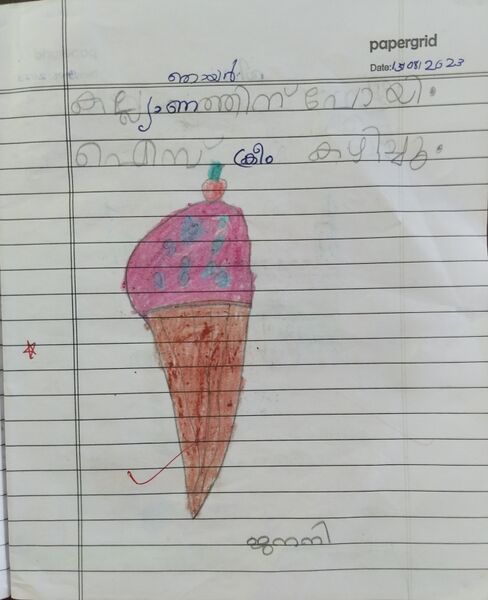 papergrid
Date: 13/08/2023
ഞായർ
കല്ല്യാണത്തിന് പോയി.
ഐസ് ക്രീം കഴിച്ചു.
ജനനി